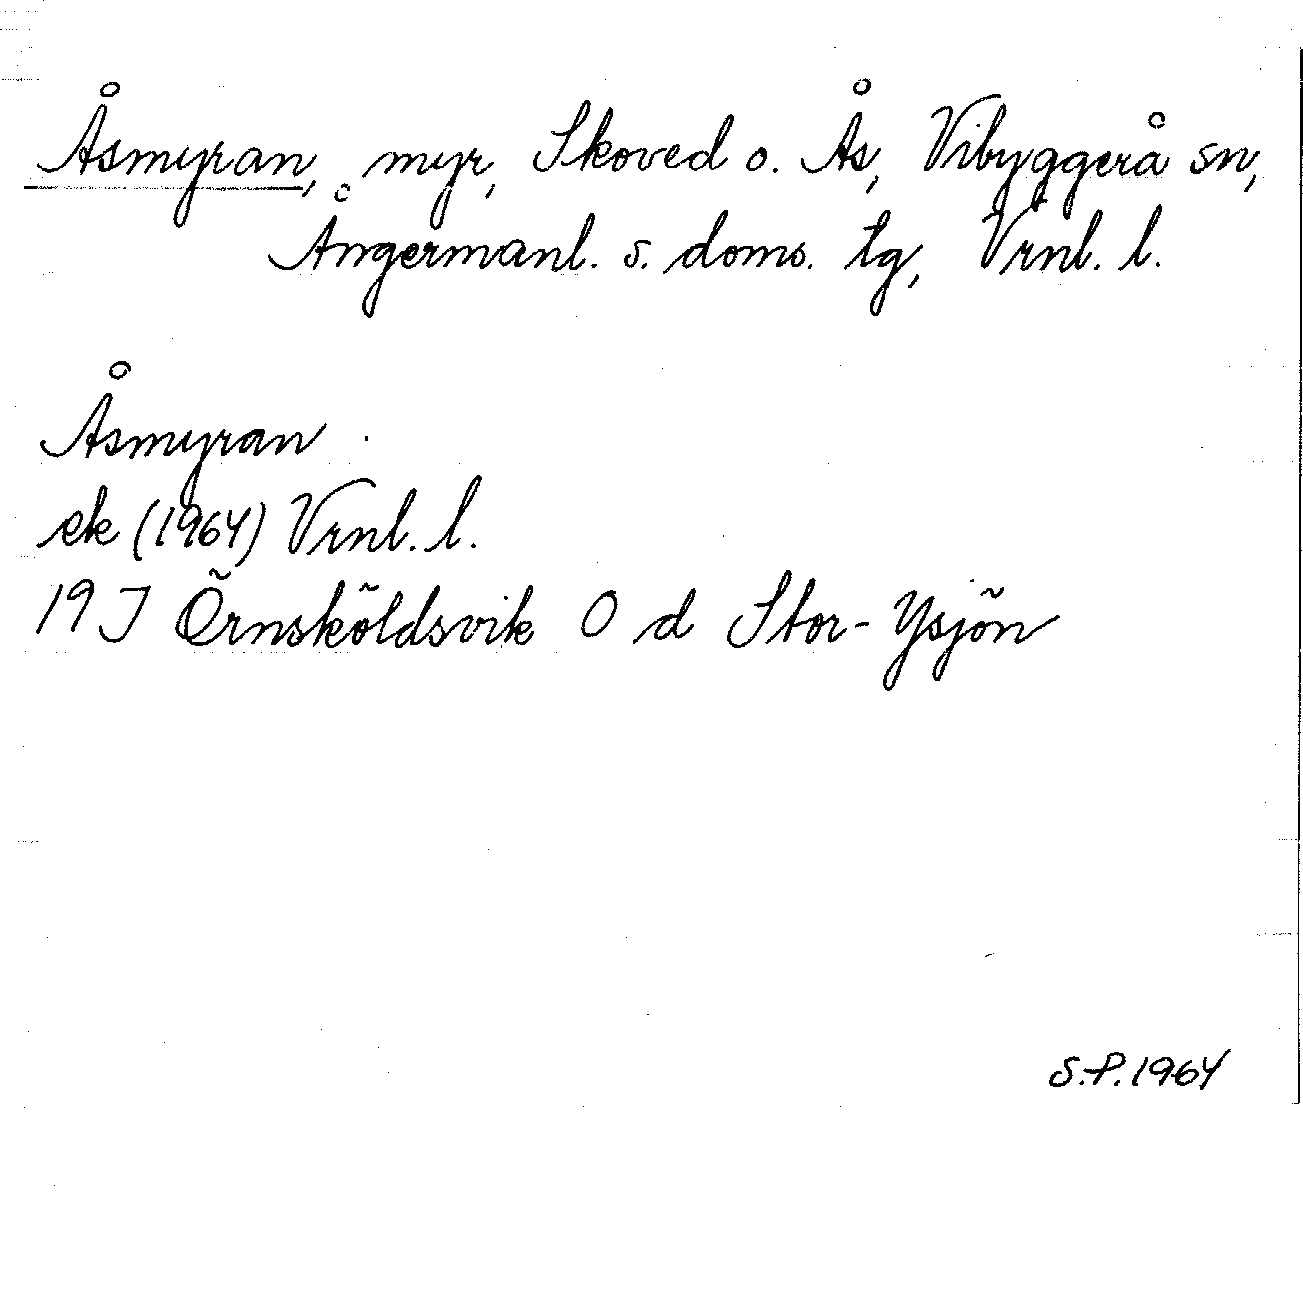 Åsmyran, myr, Skoved o. Ås, Vibyggerå sn,
Ångermanl. s. doms. tg, Vrnl. l.
Åsmyran
ek (1964) Vrnl. l.
19 J Örnsköldsvik O d Stor-Ysjön
S.P. 1964